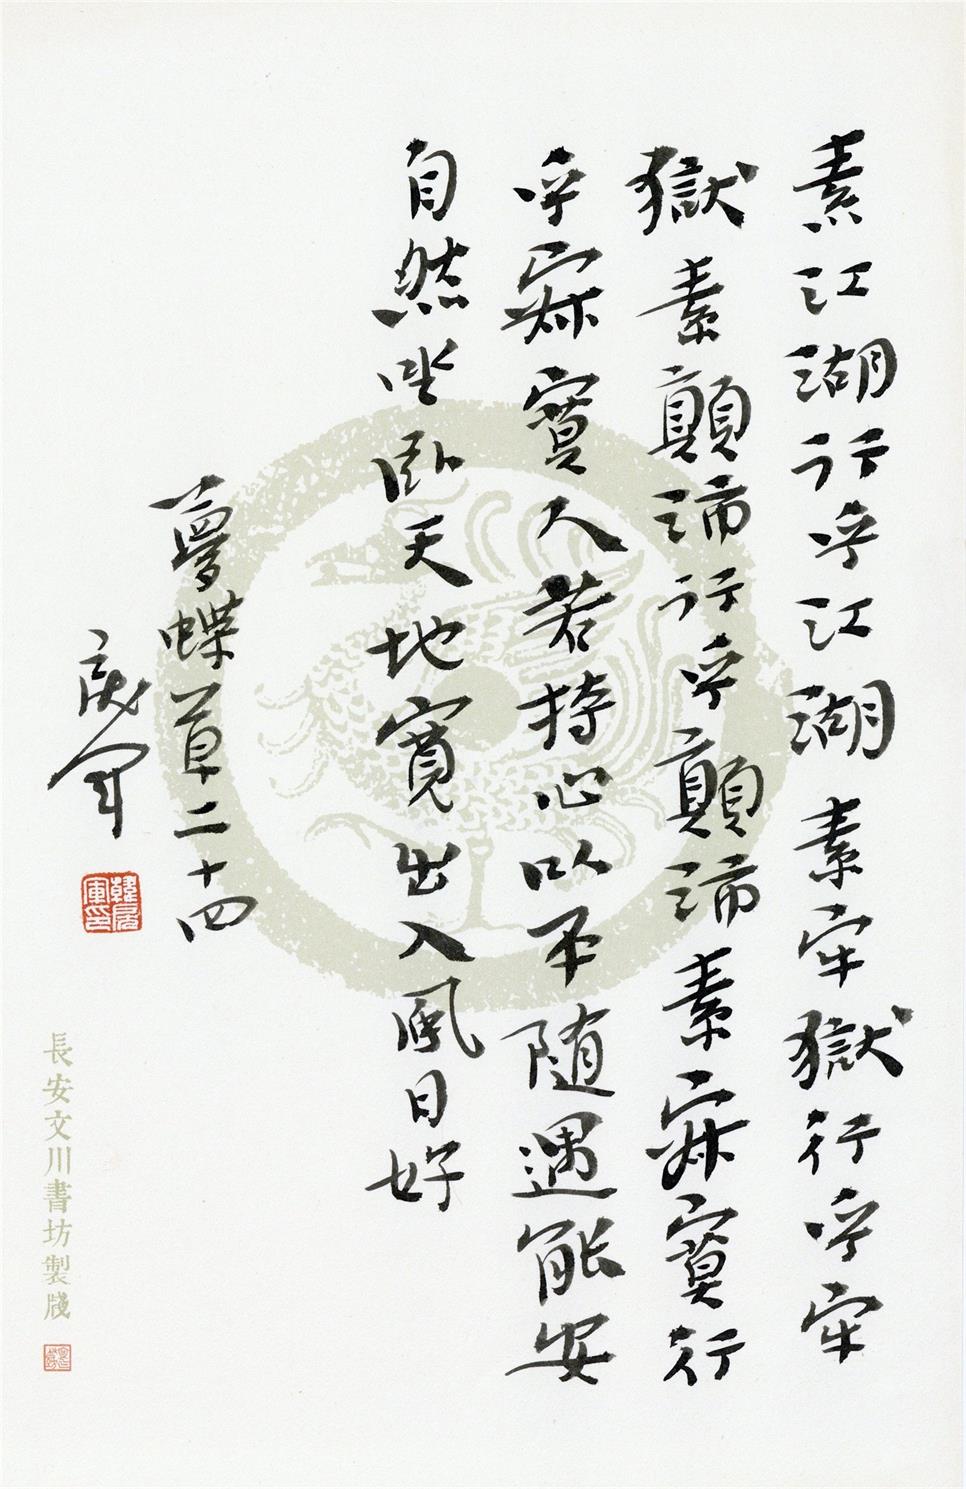 素江湖行乎江湖素牢獄行乎牢
獄素顛沛行乎顛沛素寂寞行
乎寂寞人若持心以平隨遇能安
自然坐臥天地寬出入風日好
夢蝶草二十四
長安文川書坊製牋